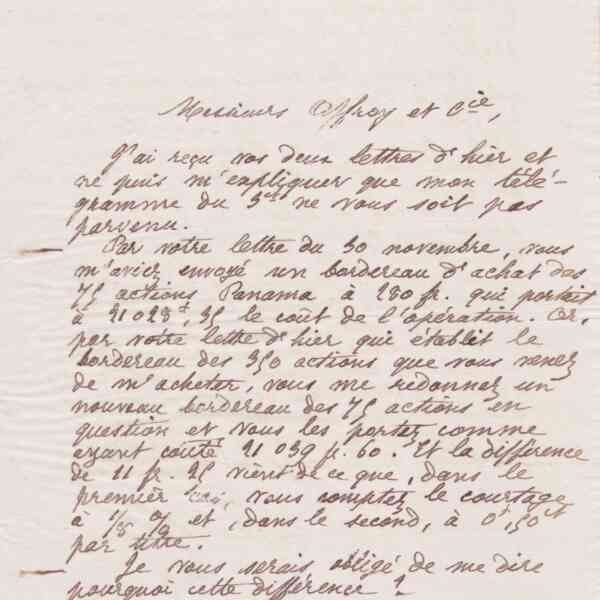 Messieurs Offroy et Cie,
J'ai reçu vos deux lettres d'hier et
ne puis m'expliquer que mon télé-
gramme du 3ct ne vous soit pas
parvenu.
Par votre lettre du 30 novembre, vous
m'aviez envoyé un bordereau d'achat des
75 actions Panama à 280 fr. qui portait
à 21 028f,35 le coût de l'opération. Or,
par votre lettre d'hier qui établit le
bordereau des 350 actions que vous venez
de m'acheter, vous me redonnez un
nouveau bordereau des 75 actions en
question et vous les portez comme
ayant coûté 21 039 f. 60. Et la différence
de 11 fr. 25 vient de ce que, dans le
premier cas, vous comptez le courtage
à 1/8 % et, dans le second, à 0f,50ct
par titre.
Je vous serais obligé de me dire
pourquoi cette différence ?